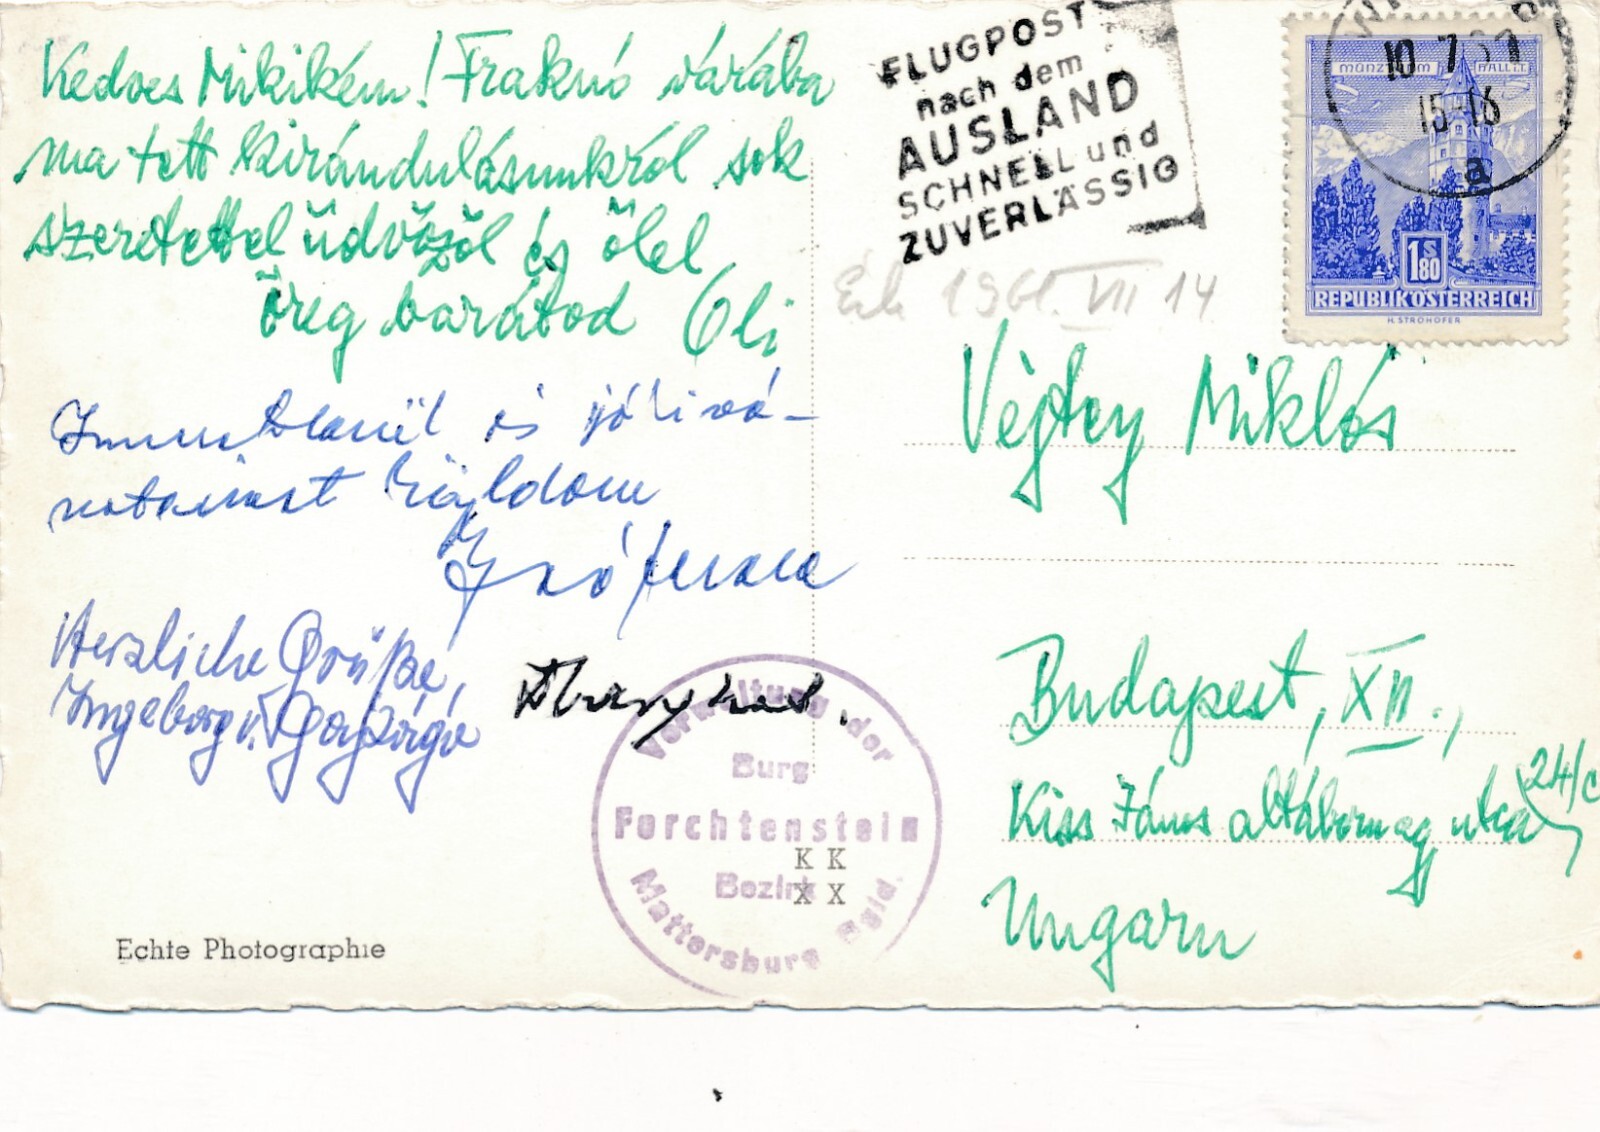 Kedves Mikikém! Fraknó várába
ma tett kirándulásunkról sok
szeretettel üdvözöl és ölel
öreg barátod Oli
és
Herzliche Grüße,
Ingeborg
Echte Photographie
Verwaltung der
Burg
Forchtenstein
Bezirk
Mattersburg Bgld.
K K
X X
FLUGPOST
nach dem
AUSLAND
SCHNELL und
ZUVERLÄSSIG
10 7 61
15-16
a
MÜNZTURM HALL I.T.
1 S 80
REPUBLIK ÖSTERREICH
H. STROHOFER
Érk 1961. VII 14
Vejtey Miklós
Budapest, XII.,
Kiss János altábornagy utca 24/c
Ungarn